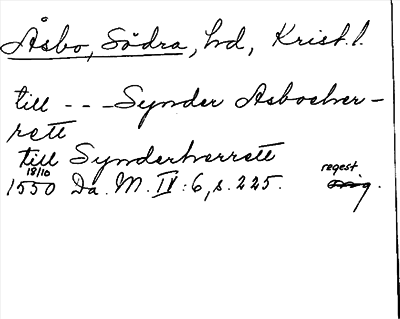 Åsbo, Södra, hd, Krist. l.
till - - - Synder Asboeher-
rett
till Synderherrett
18/10 regest
1550 Da. M. IV: 6, s. 225. orig.